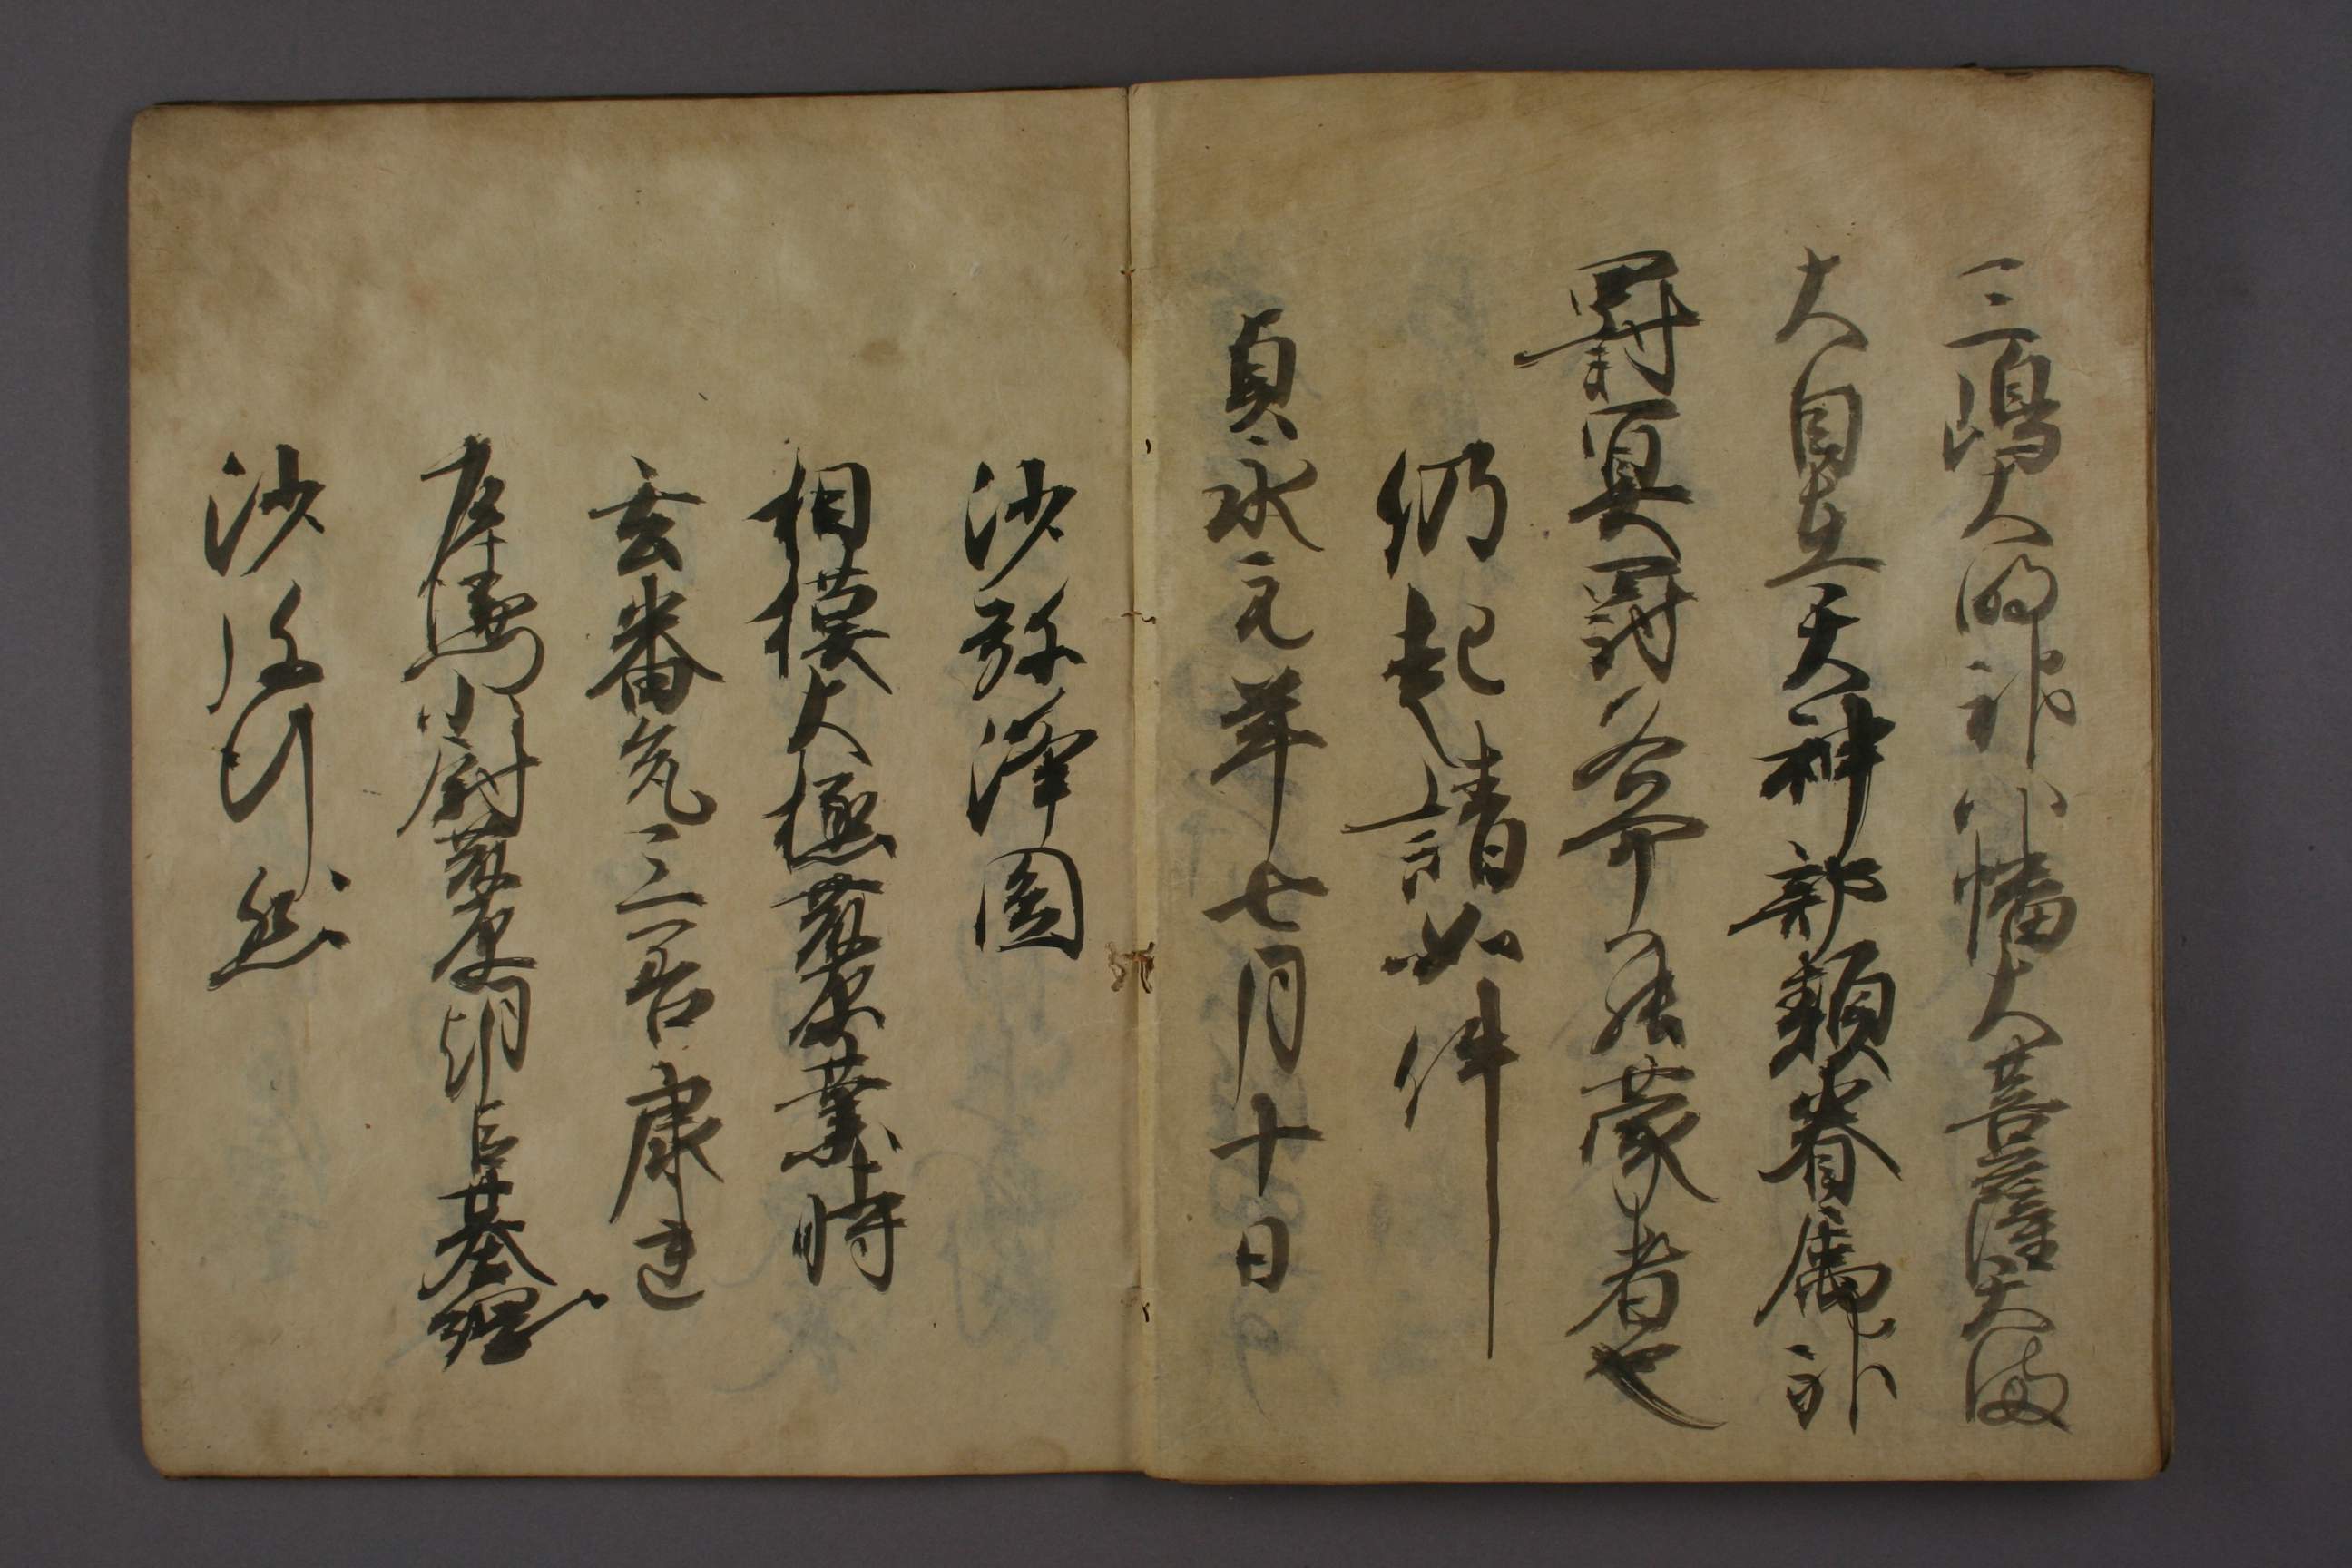 三嶋大明神八幡大菩薩天満
大自在天神部類眷属神
罰冥罰各可罷蒙者也
仍起請如件
貞永元年七月十日
沙弥浄圓
相模大掾藤原業時
玄番允三善康連
左衛門少尉藤原朝臣基綱
沙弥行然